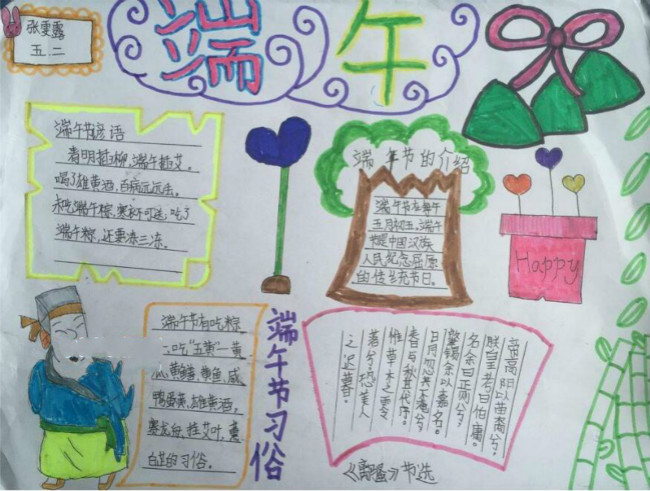 张雯露
五.二
端午
端午节谚语
清明插柳,端午插艾。
喝了雄黄酒,百病远远丢。
未吃端午粽,寒衣不可送;吃了
端午粽,还要冻三冻。
端午节的介绍
端午节在每年
五月初五,端午
节是中国汉族
人民纪念屈原
的传统节日。
Happy
端午节有吃粽
,吃“五黄”一黄
瓜、黄鳝、黄鱼、咸
鸭蛋黄、雄黄酒,
赛龙舟,挂艾叶,熏
白芷的习俗。
端午节习俗
帝高阳以苗裔兮,
朕皇考曰伯庸。
名余曰正则兮,
肇锡余以嘉名。
日月忽其不淹兮
春与秋其代序。
惟草木之零
落兮,恐美人
之迟暮。
《离骚》节选